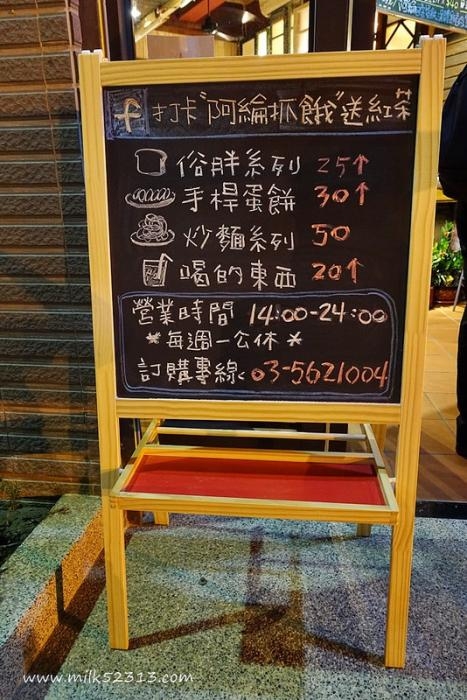 f 打卡"阿綸抓餓"送紅茶
俗胖系列 25↑
手桿蛋餅 30↑
炒麵系列 50
喝的東西 20↑
營業時間 14:00-24:00
*每週一公休*
訂購專線: 03-5621004
www.milk52313.com